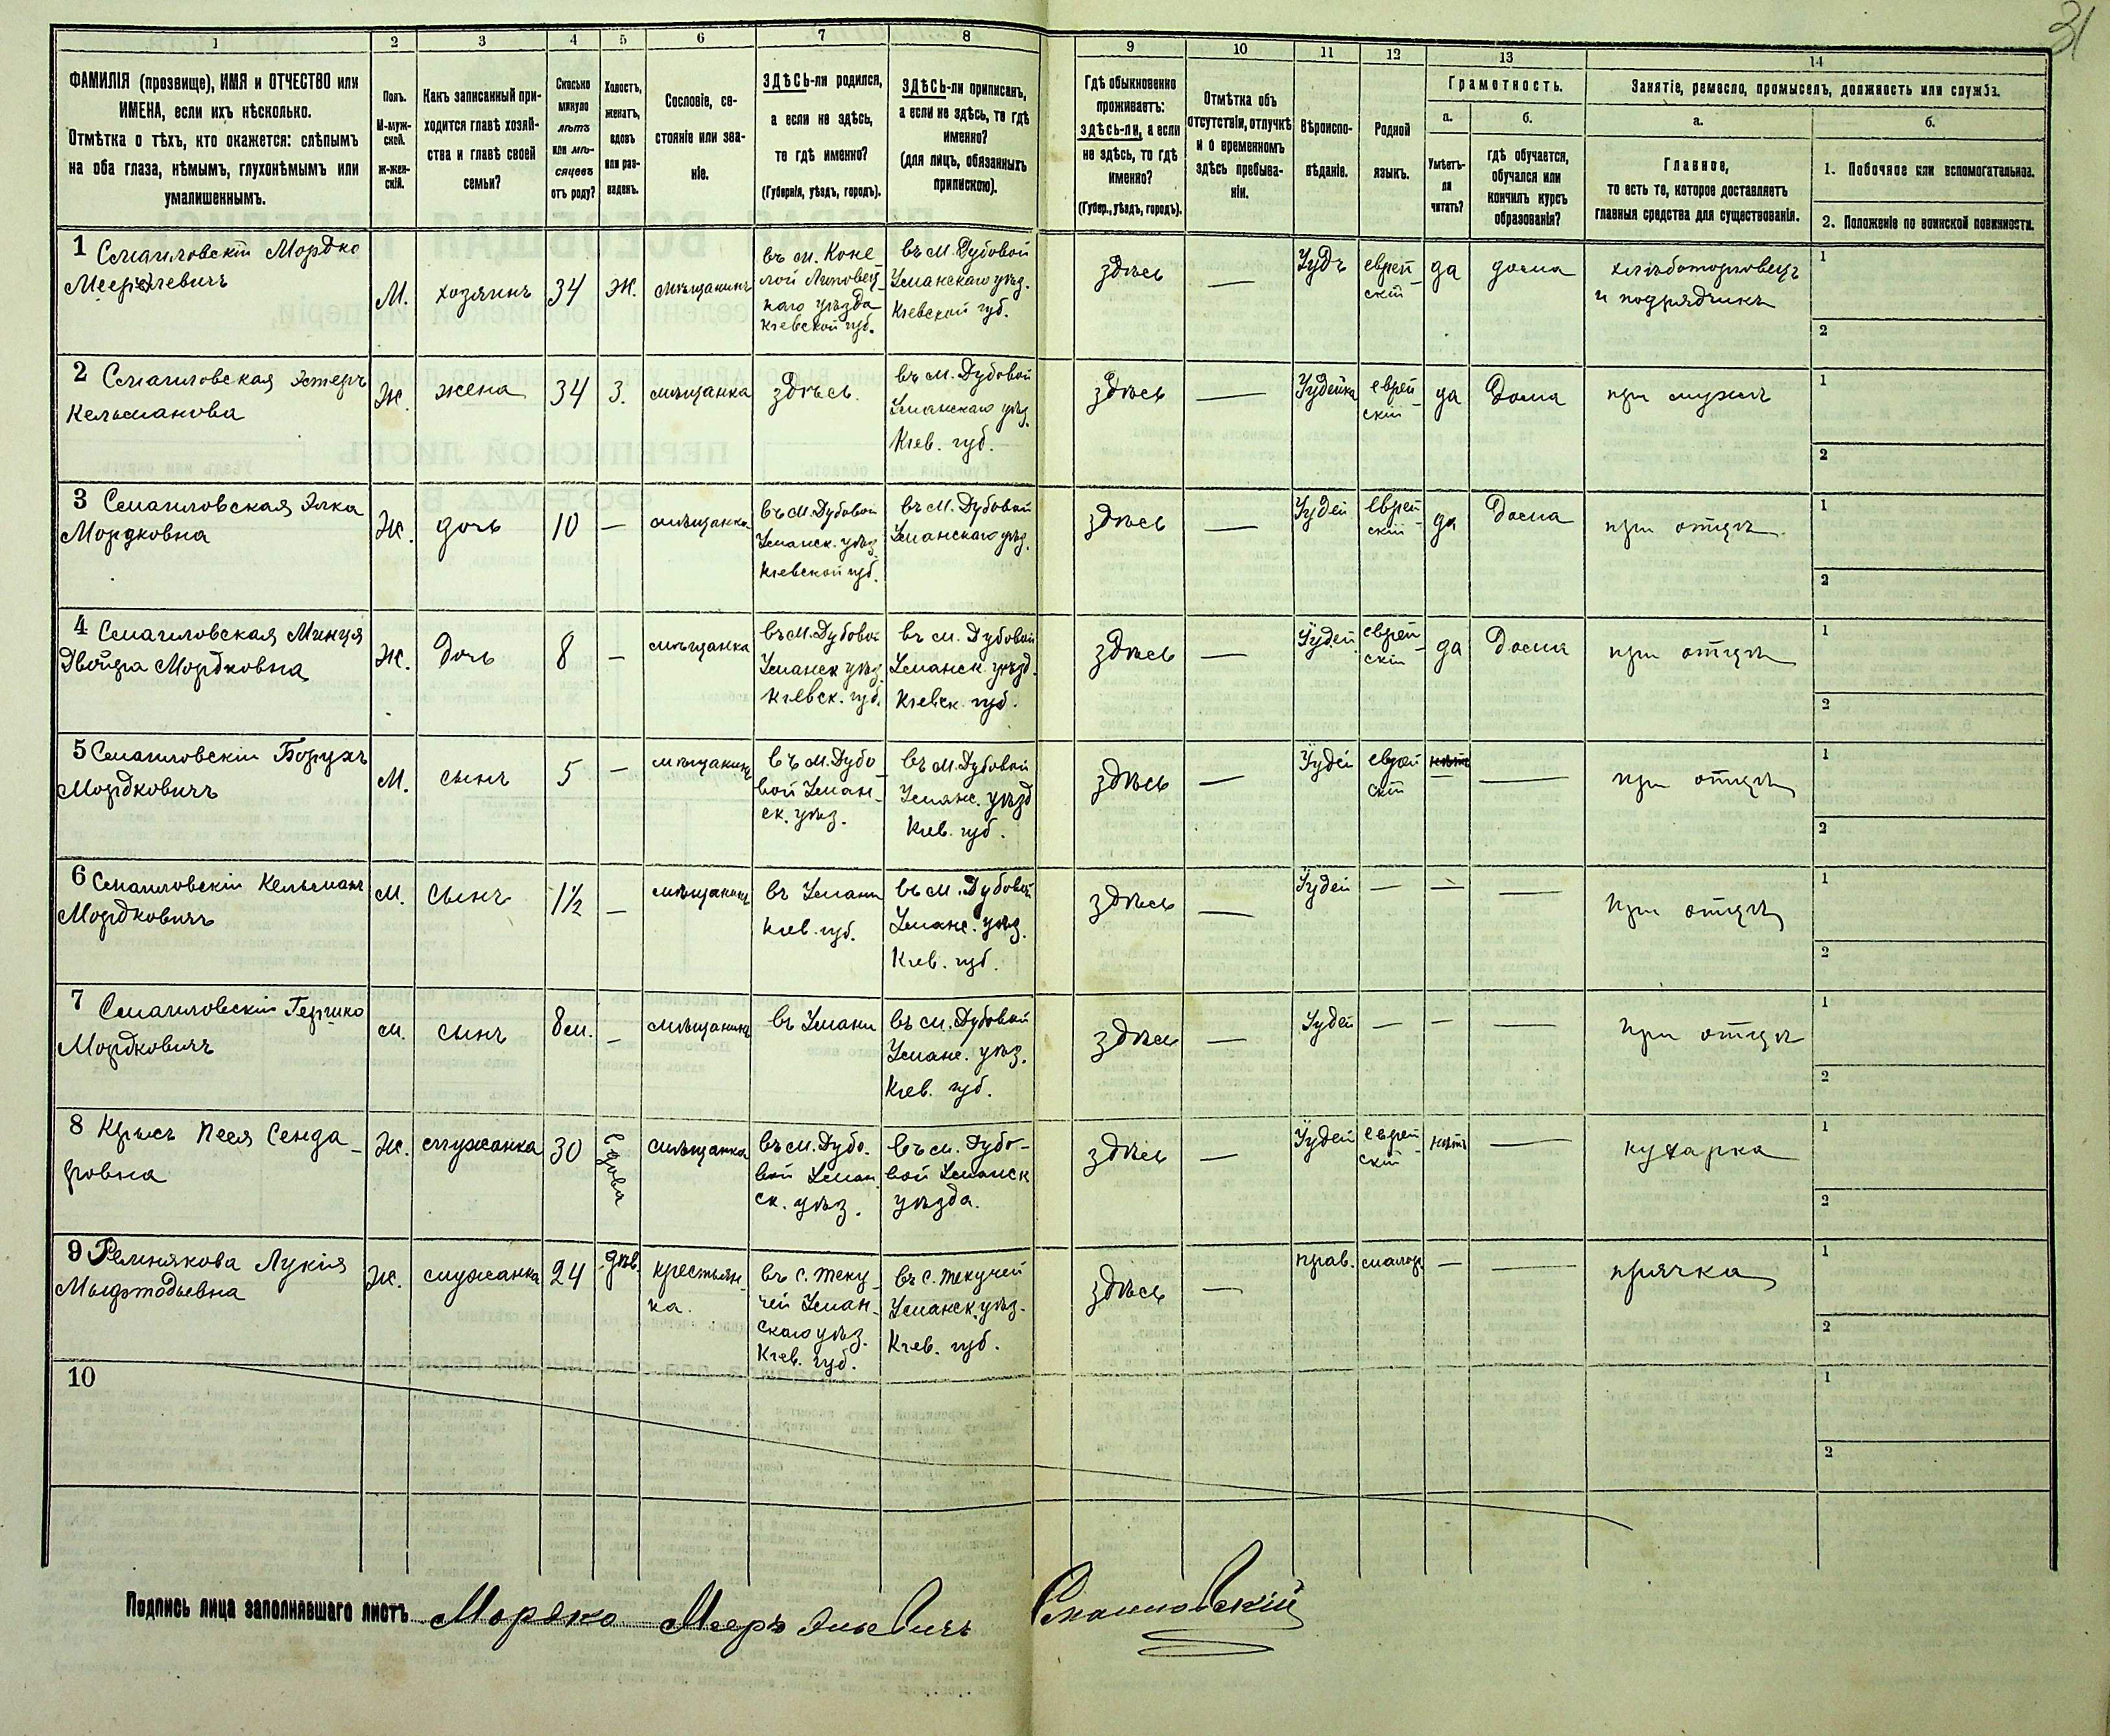 31
1 2 3 4 5 6 7 8 9 10 11 12 13 14
ФАМИЛІЯ (прозвище), ИМЯ и ОТЧЕСТВО или
ИМЕНА, если ихъ нѣсколько.
Отмѣтка о тѣхъ, кто окажется: слѣпымъ
на оба глаза, нѣмымъ, глухонѣмымъ или
умалишеннымъ.
Полъ.
М-муж-
ской.
Ж-жен-
скій.
Какъ записанный при-
ходится главѣ хозяй-
ства и главѣ своей
семьи?
Сколько
минуло
лѣтъ
или мѣ-
сяцевъ
отъ роду?
Холостъ,
женатъ,
вдовъ
или раз-
веденъ.
Сословіе, со-
стояніе или зва-
ніе.
ЗДѢСЬ-ли родился,
а если не здѣсь,
то гдѣ именно?
(Губернія, уѣздъ, городъ).
ЗДѢСЬ-ли приписанъ,
а если не здѣсь, то гдѣ
именно?
(для лицъ, обязанныхъ
припискою).
Гдѣ обыкновенно
проживаетъ:
здѣсь-ли, а если
не здѣсь, то гдѣ
именно?
(Губер., уѣздъ, городъ).
Отмѣтка объ
отсутствіи, отлучкѣ
и о временномъ
здѣсь пребыва-
ніи.
Вѣроиспо-
вѣданіе.
Родной
языкъ.
Грамотность.
а.
Умѣетъ-
ли
читать?
б.
гдѣ обучается,
обучался или
кончилъ курсъ
образованія?
Занятіе, ремесло, промыселъ, должность или служба.
а.
Главное,
то есть то, которое доставляетъ
главныя средства для существованія.
б.
1. Побочное или вспомогательное.
2. Положеніе по воинской повинности.
1 Смаиловскій Мордко
М. хозяинъ 34 Ж. мѣщанинъ
въ м. Коне-
лой Липовец-
каго уѣзда
Кіевской губ.
въ м. Дубовой
Уманскаго уѣз.
Кіевской губ.
здѣсь — Іудъ еврей-
скій
да дома хлѣботорговецъ
и подрядчикъ
1
2
2 Смаиловская Эстеръ
Кельманова
Ж. жена 34 З. мѣщанка здѣсь.
въ м. Дубовой
Уманскаго уѣз.
Кіев. губ.
здѣсь — Іудейка еврей-
скій
да Дома при мужѣ
1
2
3 Смаиловская Элка
Мордковна
Ж. дочь 10 — мѣщанка
въ м. Дубовой
Уманск. уѣз.
Кіевской губ.
въ м. Дубовой
Уманскаго уѣз.
здѣсь — Іудей Еврей-
скій
да Дома при отцѣ
1
2
4 Смаиловская Минця
Двойра Мордковна
Ж. Дочь 8 — мѣщанка
въ м. Дубовой
Уманск уѣз.
Кіевск. губ.
въ м. Дубовой
Уманск. уѣзд.
Кіевск. губ.
здѣсь — Іудей еврей-
скій
да Дома при отцѣ
1
2
5 Смаиловскій Борухъ
Мордковичъ
М. сынъ 5 — мѣщанинъ
въ м. Дубо-
вой Уман-
ск. уѣз.
въ м. Дубовой
Уманс. уѣзд
Кіев. губ.
здѣсь — Іудей еврей
скій
— — при отцѣ
1
2
6 Смаиловскій Кельманъ
Мордковичъ
М. Сынъ 1½ — мѣщанинъ
въ Умани
Кіев. губ.
въ м. Дубовой
Уманс. уѣз.
Кіев. губ.
здѣсь — Іудей — — — при отцѣ
1
2
7 Смаиловскій Гершко
Мордковичъ
М. сынъ 8 м. — мѣщанинъ въ Умани
въ м. Дубовой
Уманс. уѣз.
Кіев. губ.
здѣсь — Іудей — — — при отцѣ
1
2
8 Крысъ Песя Сенда-
ровна
Ж. служанка 30 Вдова мѣщанка
въ м. Дубо-
вой Уман.
ск. уѣз.
въ м. Дубо-
вой Уманск
уѣзда.
здѣсь — Іудей еврей-
скій
нѣтъ — кухарка
1
2
9 Лукія
Ж. служанка 24 дѣв. крестьян-
ка.
въ с. Теку-
чей Уман-
скаго уѣз.
Кіев. губ.
въ с. Текучей
Уманск. уѣз.
Кіев. губ.
здѣсь — прав. малор. — — прачка
1
2
10
1
2
Подпись лица заполнявшаго листъ Мордко Мееръ Смаиловскій